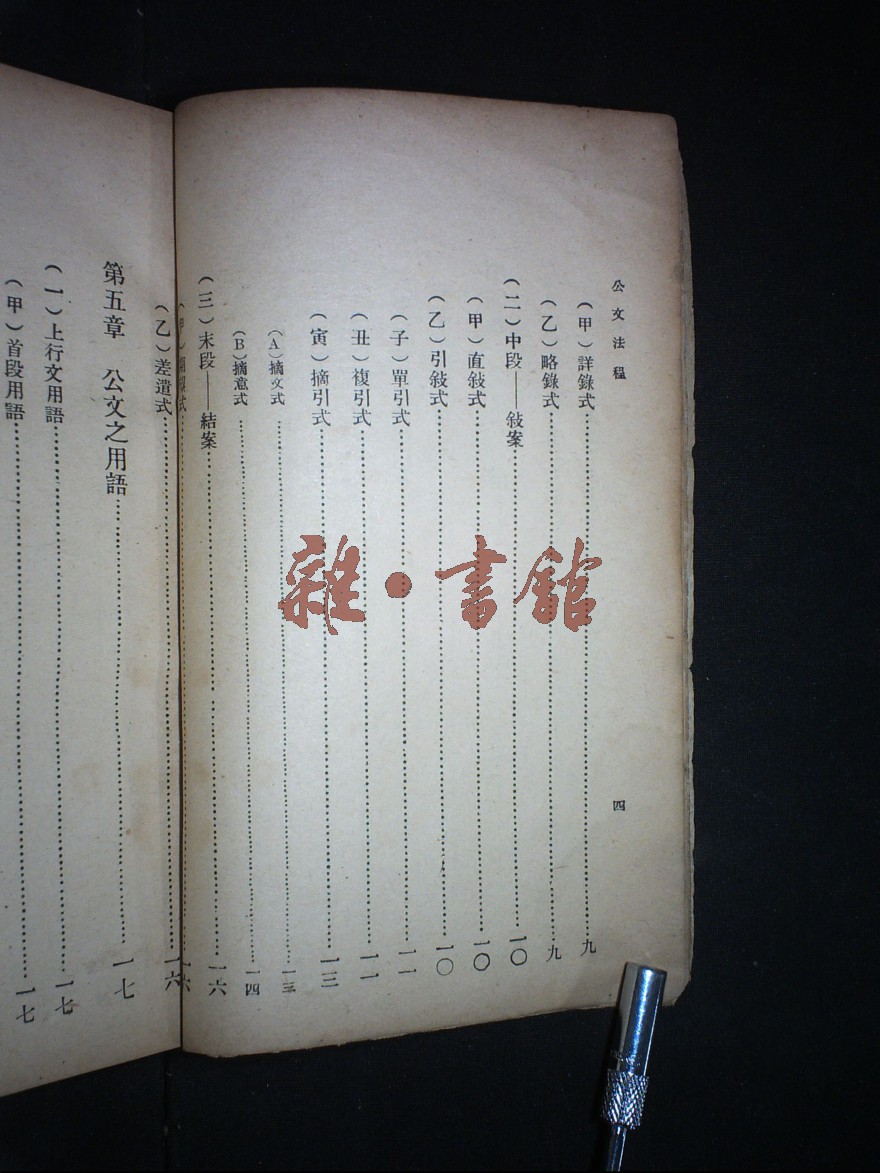 公文法程
四
（甲）詳錄式……九
（乙）略錄式……九
（二）中段——敍案……一〇
（甲）直敍式……一〇
（乙）引敍式……一〇
（子）單引式……一一
（丑）複引式……一一
（寅）摘引式……一三
（A）摘文式……一三
（B）摘意式……一四
（三）末段——結案……一六
（甲）式……一六
（乙）差遣式……一六
第五章　公文之用語……一七
（一）上行文用語……一七
（甲）首段用語……一七
雜·書館